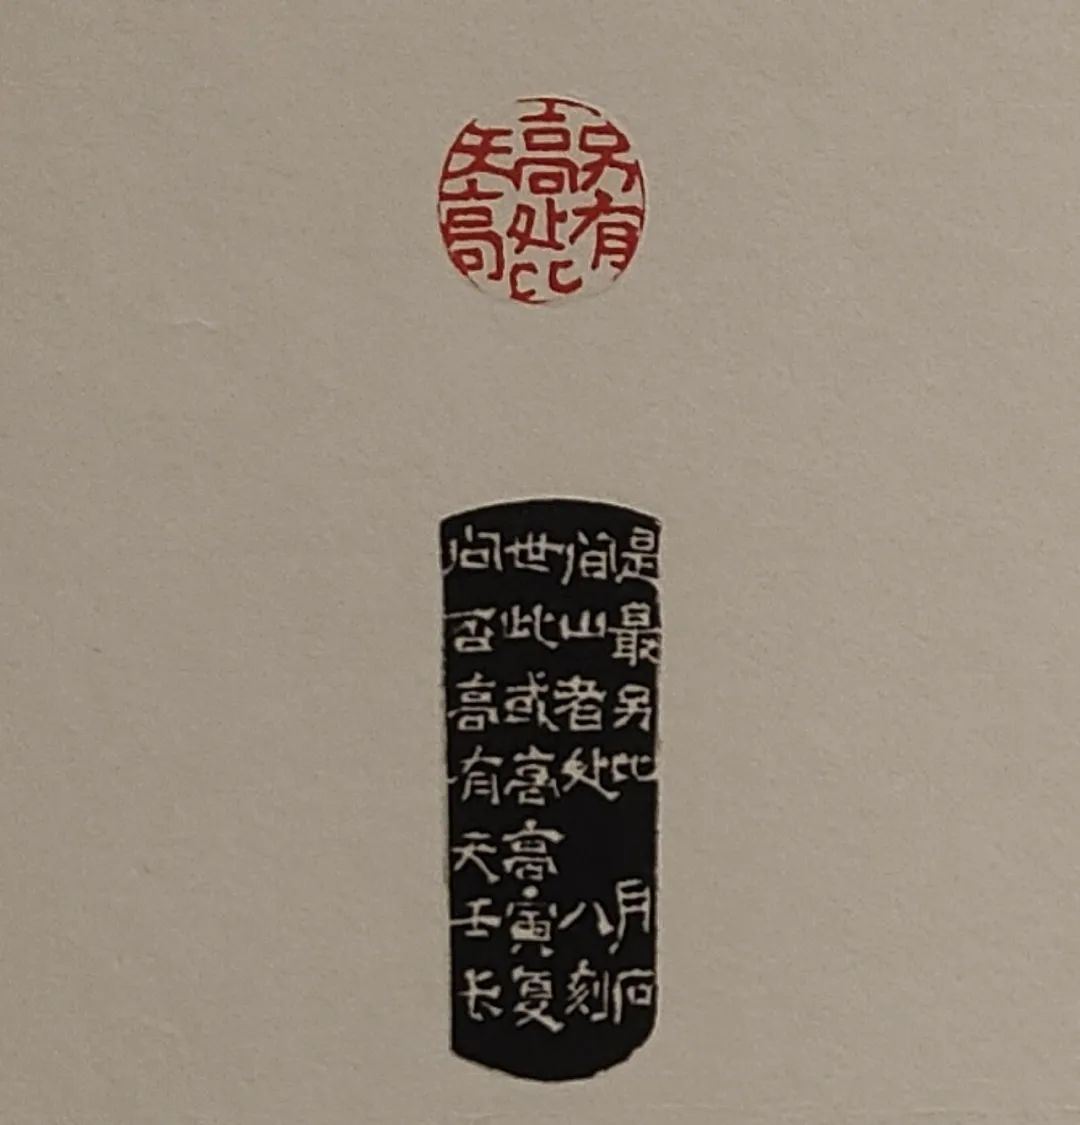 另有
高处比
天高
问世间是
否此山最
高或者另
有高处比
天高
壬寅八月
长复刻石